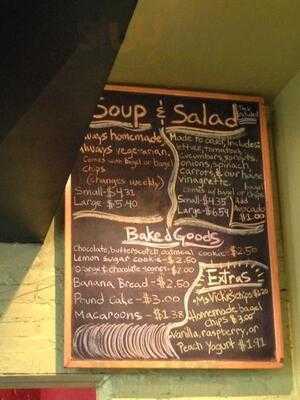 Soup & Salad
Tax is included
always homemade
always vegetarian
Comes with bagel or bagel
chips
(changes weekly)
Small-$4.31
Large-$5.40
Made to order, includes
lettuce, tomatoes,
cucumbers, sprouts,
onions, spinach,
carrots, & our house
vinaigrette.
comes w/ bagel or chips
Small-$4.35
Large-$6.54
Add
avocado
$1.00
Baked Goods
Chocolate, butterscotch oatmeal cookie -$2.50
Lemon sugar cookie -$2.50
Orange & chocolate scones-$2.00
Banana Bread -$2.50
Pound Cake -$3.00
Macaroons -$1.38
Extras
Ms Vickies chips
Homemade bagel
chips $3.00
Vanilla, raspberry, or
Peach Yogurt $1.92